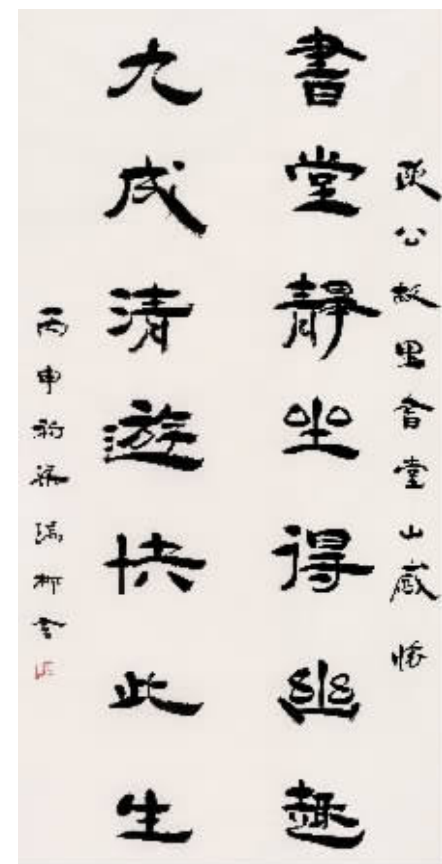 歐公故里書堂山感懷
書堂靜坐得幽趣
九成清遊快此生
丙申初梁瑞彬書